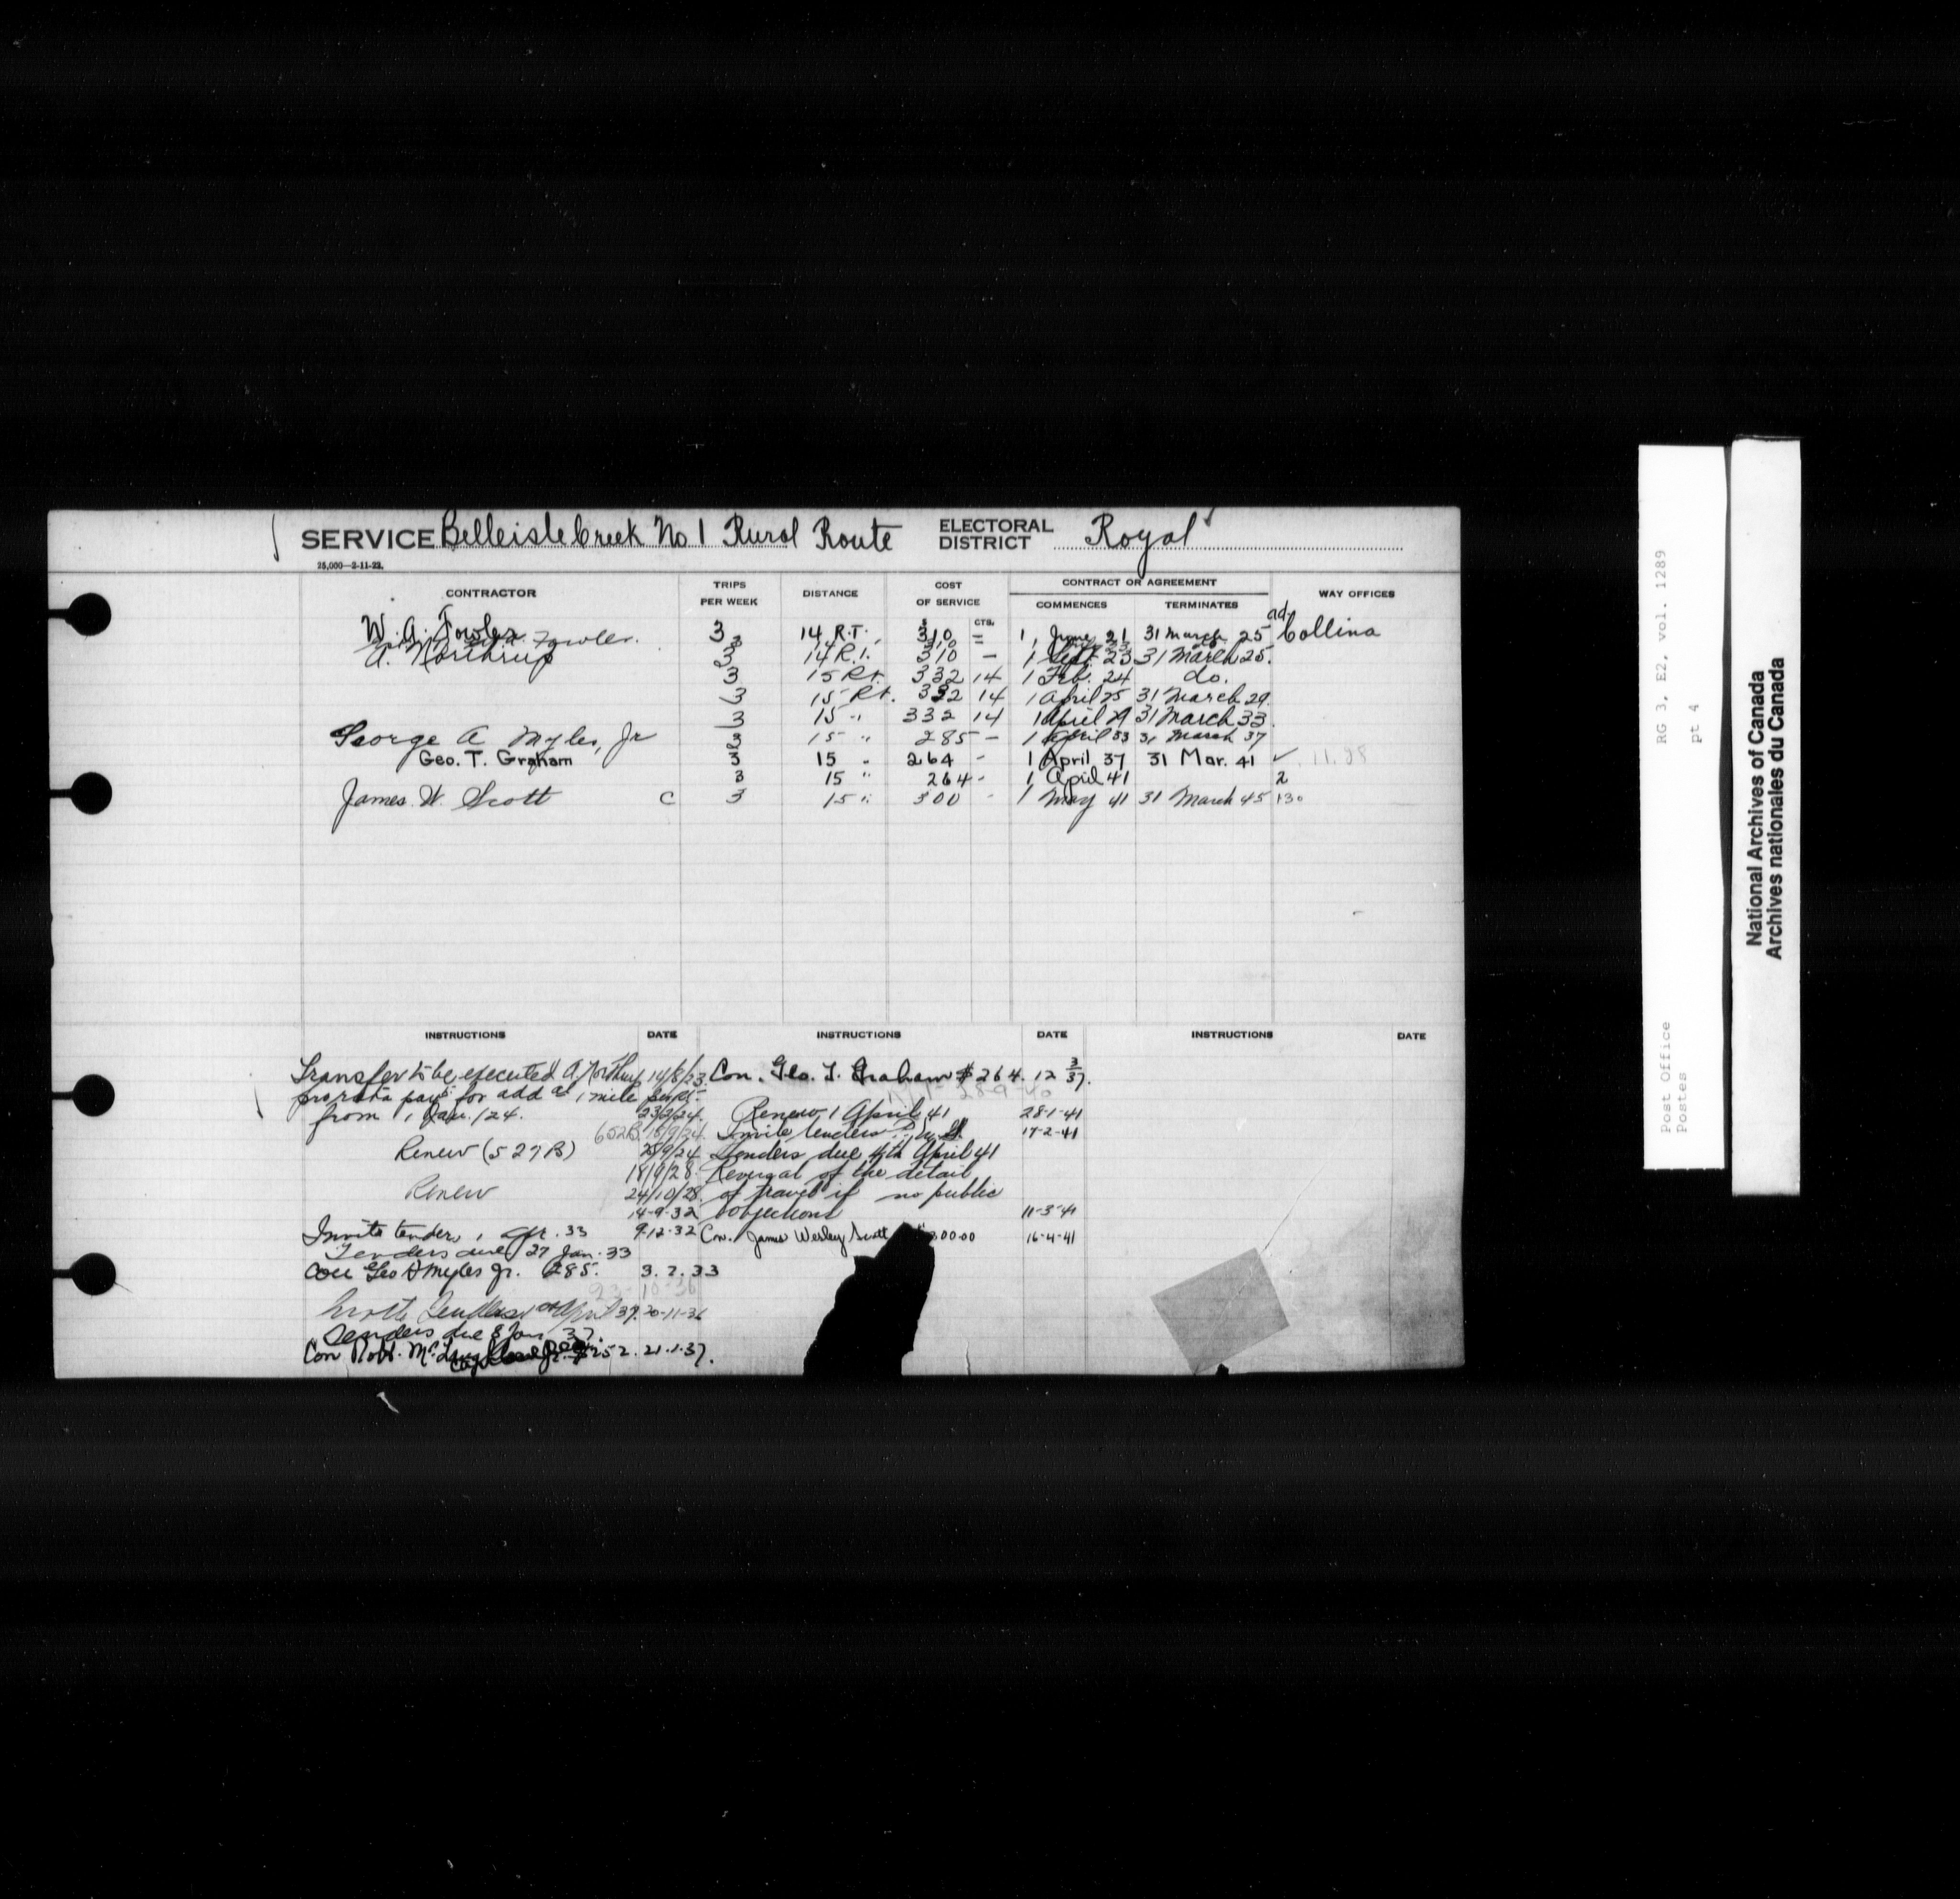 SERVICE Belleisle Creek No 1 Rural Route ELECTORAL DISTRICT Royal
25,000—2-11-22.
CONTRACTOR TRIPS PER WEEK DISTANCE COST OF SERVICE CONTRACT OR AGREEMENT COMMENCES TERMINATES WAY OFFICES
$ CTS.
W. A. Fowler 3 14 R.T. 310 = 1 June 21 31 March 25 ad Collina
Fowler.
A. Northrup 3 14 R.T. 310 — 1 Sept 23 31 March 25.
3 15 Rt. 332 14 1 Feb. 24 do.
3 15 Rt. 332 14 1 April 25 31 March 29.
3 15 " 332 14 1 April 29 31 March 33.
George A Myles, Jr 3 15 " 285 — 1 April 33 31 March 37
Geo. T. Graham 3 15 " 264 - 1 April 37 31 Mar. 41 ✓ 11.28
3 15 " 264 - 1 April 41 2
James. W. Scott C 3 15 " 300 - 1 May 41 31 March 45 130
INSTRUCTIONS DATE INSTRUCTIONS DATE INSTRUCTIONS DATE
Transfer to be executed A. Northrup 14/8/23.
pro rata payt for add al 1 mile
from 1 Jan. /24. 23/2/24
652B. 15/9/24
Renew (527B) 25/9/24
18/9/28.
Renew 24/10/28.
14-9-32
Invite tenders, 1 Apr. 33 9-12-32
Tenders due 27 Jan. 33
Con Geo A Myles Jr. 285. 3.2.33
23-10-36
Invite Tenders 1st April 37. 20-11-36
Tenders due 8 Jan 37.
Con Robt. $252. 21.1.37.
Con. Geo. T. Graham $264. 12 3/37.
28-9-40
Renew 1 April 41 28-1-41
Invite tenders 17-2-41
Tenders due 4th April 41
Reversal of the detail
of travel if no public
objections 11-3-41
Con. James Wesley Scott 300.00 16-4-41
RG 3, E2, vol. 1289
pt 4
Post Office
Postes
National Archives of Canada
Archives nationales du Canada